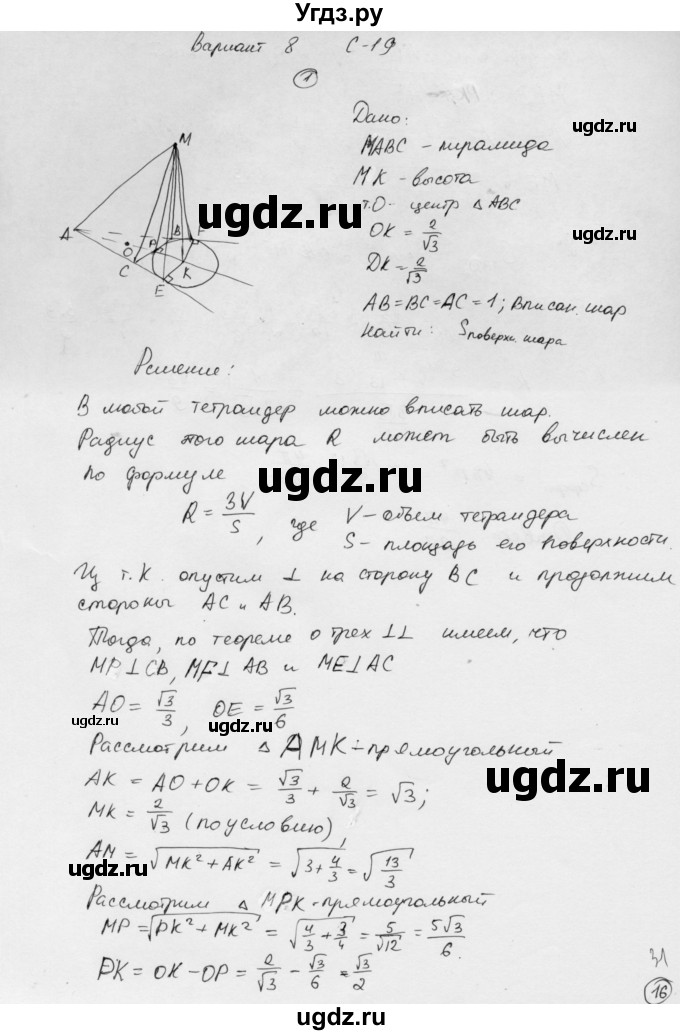 Угдз.ру
Вариант 8 С-19
1
Дано:
МАВС - пирамида
МК - высота
т.О- центр △ АВС
OK = 2/√3
DK = 2/√3
AB = BC = AC = 1; вписан. шар
Найти: Sповерхн. шара
M
A
O
C
P
B
F
K
E
ugdz.ru
ugdz.ru
Решение:
В любой тетраидер можно вписать шар.
Радиус этого шара R может быть вычислен
по формуле
ugdz.ru
ugdz.ru
R = 3V/S, где V - объем тетраидера
S - площадь его поверхности.
Из т. К. опустим ⊥ на сторону BC и продолжим
стороны AC и AB.
Тогда, по теореме о трех ⊥⊥ имеем, что
MP⊥CB, MF⊥AB и ME⊥AC
AO = √3/3, OE = √3/6
ugdz.ru
ugdz.ru
Рассмотрим △ AMK - прямоугольный
AK = AO + OK = √3/3 + 2/√3 = √3;
ugdz.ru
MK = 2/√3 (по условию),
AM = √(MK² + AK²) = √(3 + 4/3) = √(13/3)
ugdz.ru
Рассмотрим △ MPK - прямоугольный
MP = √(PK² + MK²) = √(4/3 + 3/4) = 5/√12 = 5√3/6.
ugdz.ru
PK = OK - OP = 2/√3 - √3/6 = √3/2
31
16